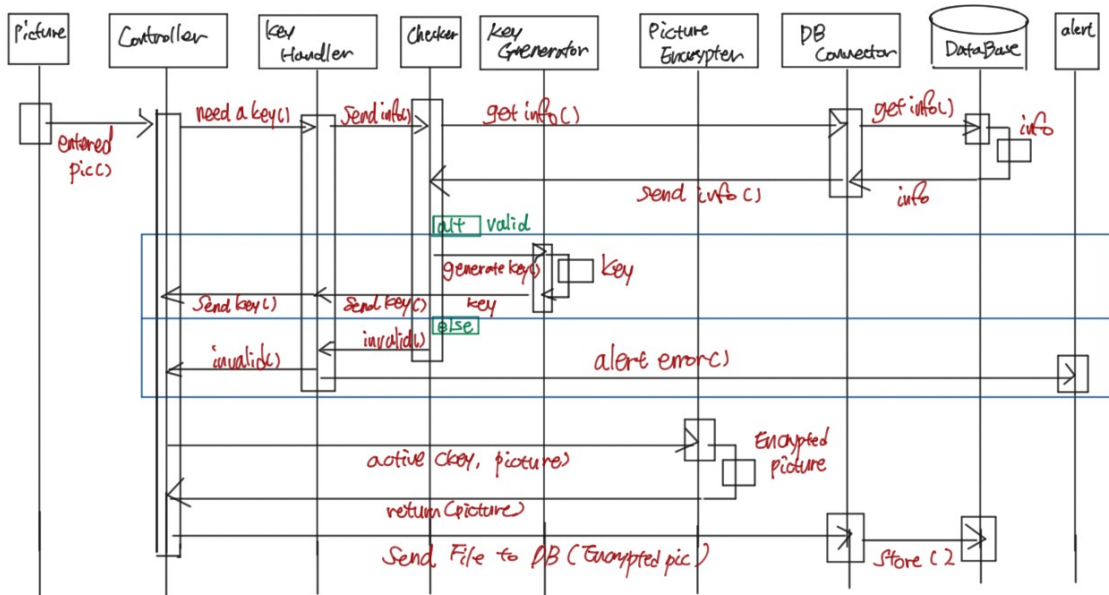 Picture
Controller
Key
Handler
Checker
Key
Generator
Picture
Encrypter
DB
Connector
DataBase
alert
entered
pic()
need a key()
Send info()
get info()
get info()
info
send info()
info
alt
valid
generate key()
key
Send key()
Send key()
key
else
invalid()
invalid()
alert error()
active (key, picture)
Encrypted
picture
return(picture)
Send File to DB (Encrypted pic)
Store ( )